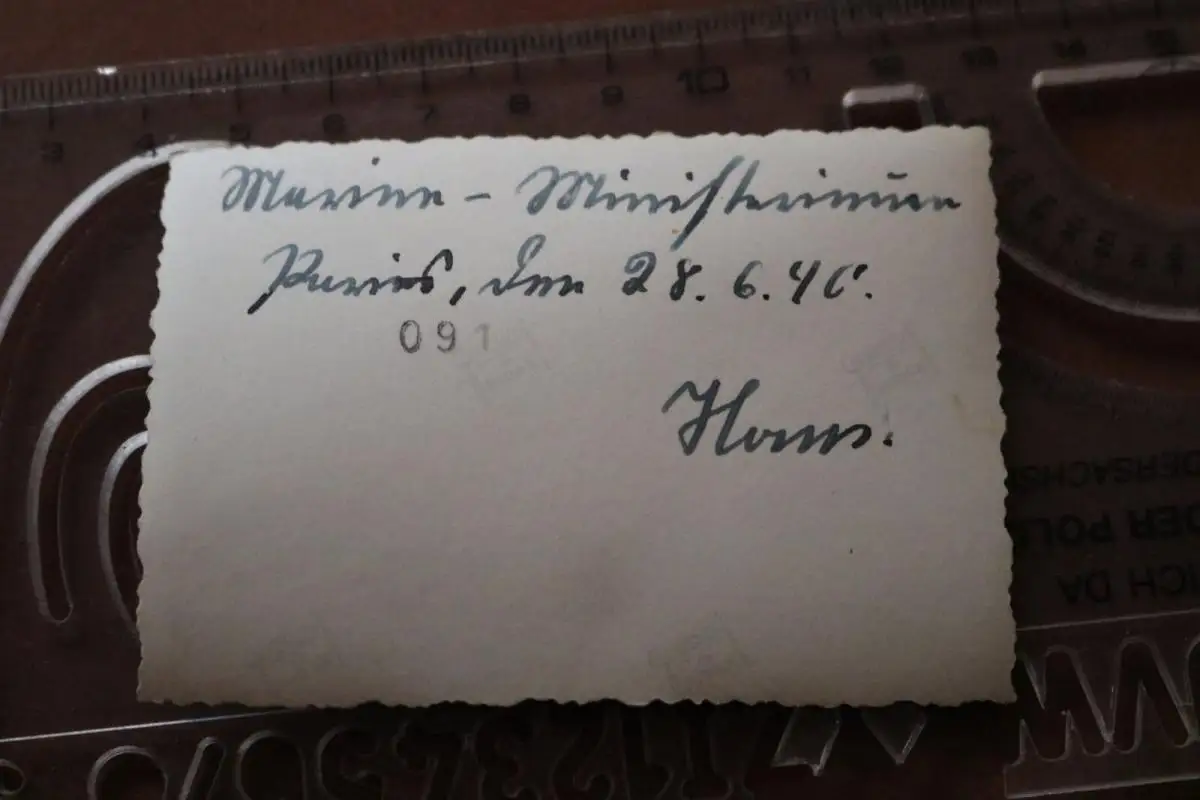 3 4 5 6 7 8 9 10 11 12 13 14 15
Marine - Ministerium
Paris, den 28.6.40.
091
Hans.
DERSACHS
DER POL
ICH DA